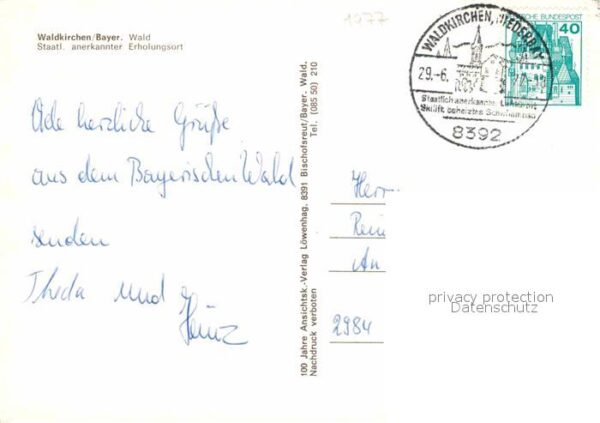 1977
Waldkirchen/Bayer. Wald
Staatl. anerkannter Erholungsort
WALDKIRCHEN, NIEDERBAY
29.-6.
Staatlich anerkannte
Skilift beheiztes Schwimmbad
8392
DEUTSCHE BUNDESPOST
40
herzliche Grüße
aus dem Bayerischen Wald
senden
Theda und
Heinz
100 Jahre Ansichtsk.-Verlag Löwenhag, 8391 Bischofsreut/Bayer. Wald.
Nachdruck verboten Tel. (085 50) 210
Herr
Rein
An
2984
privacy protection
Datenschutz